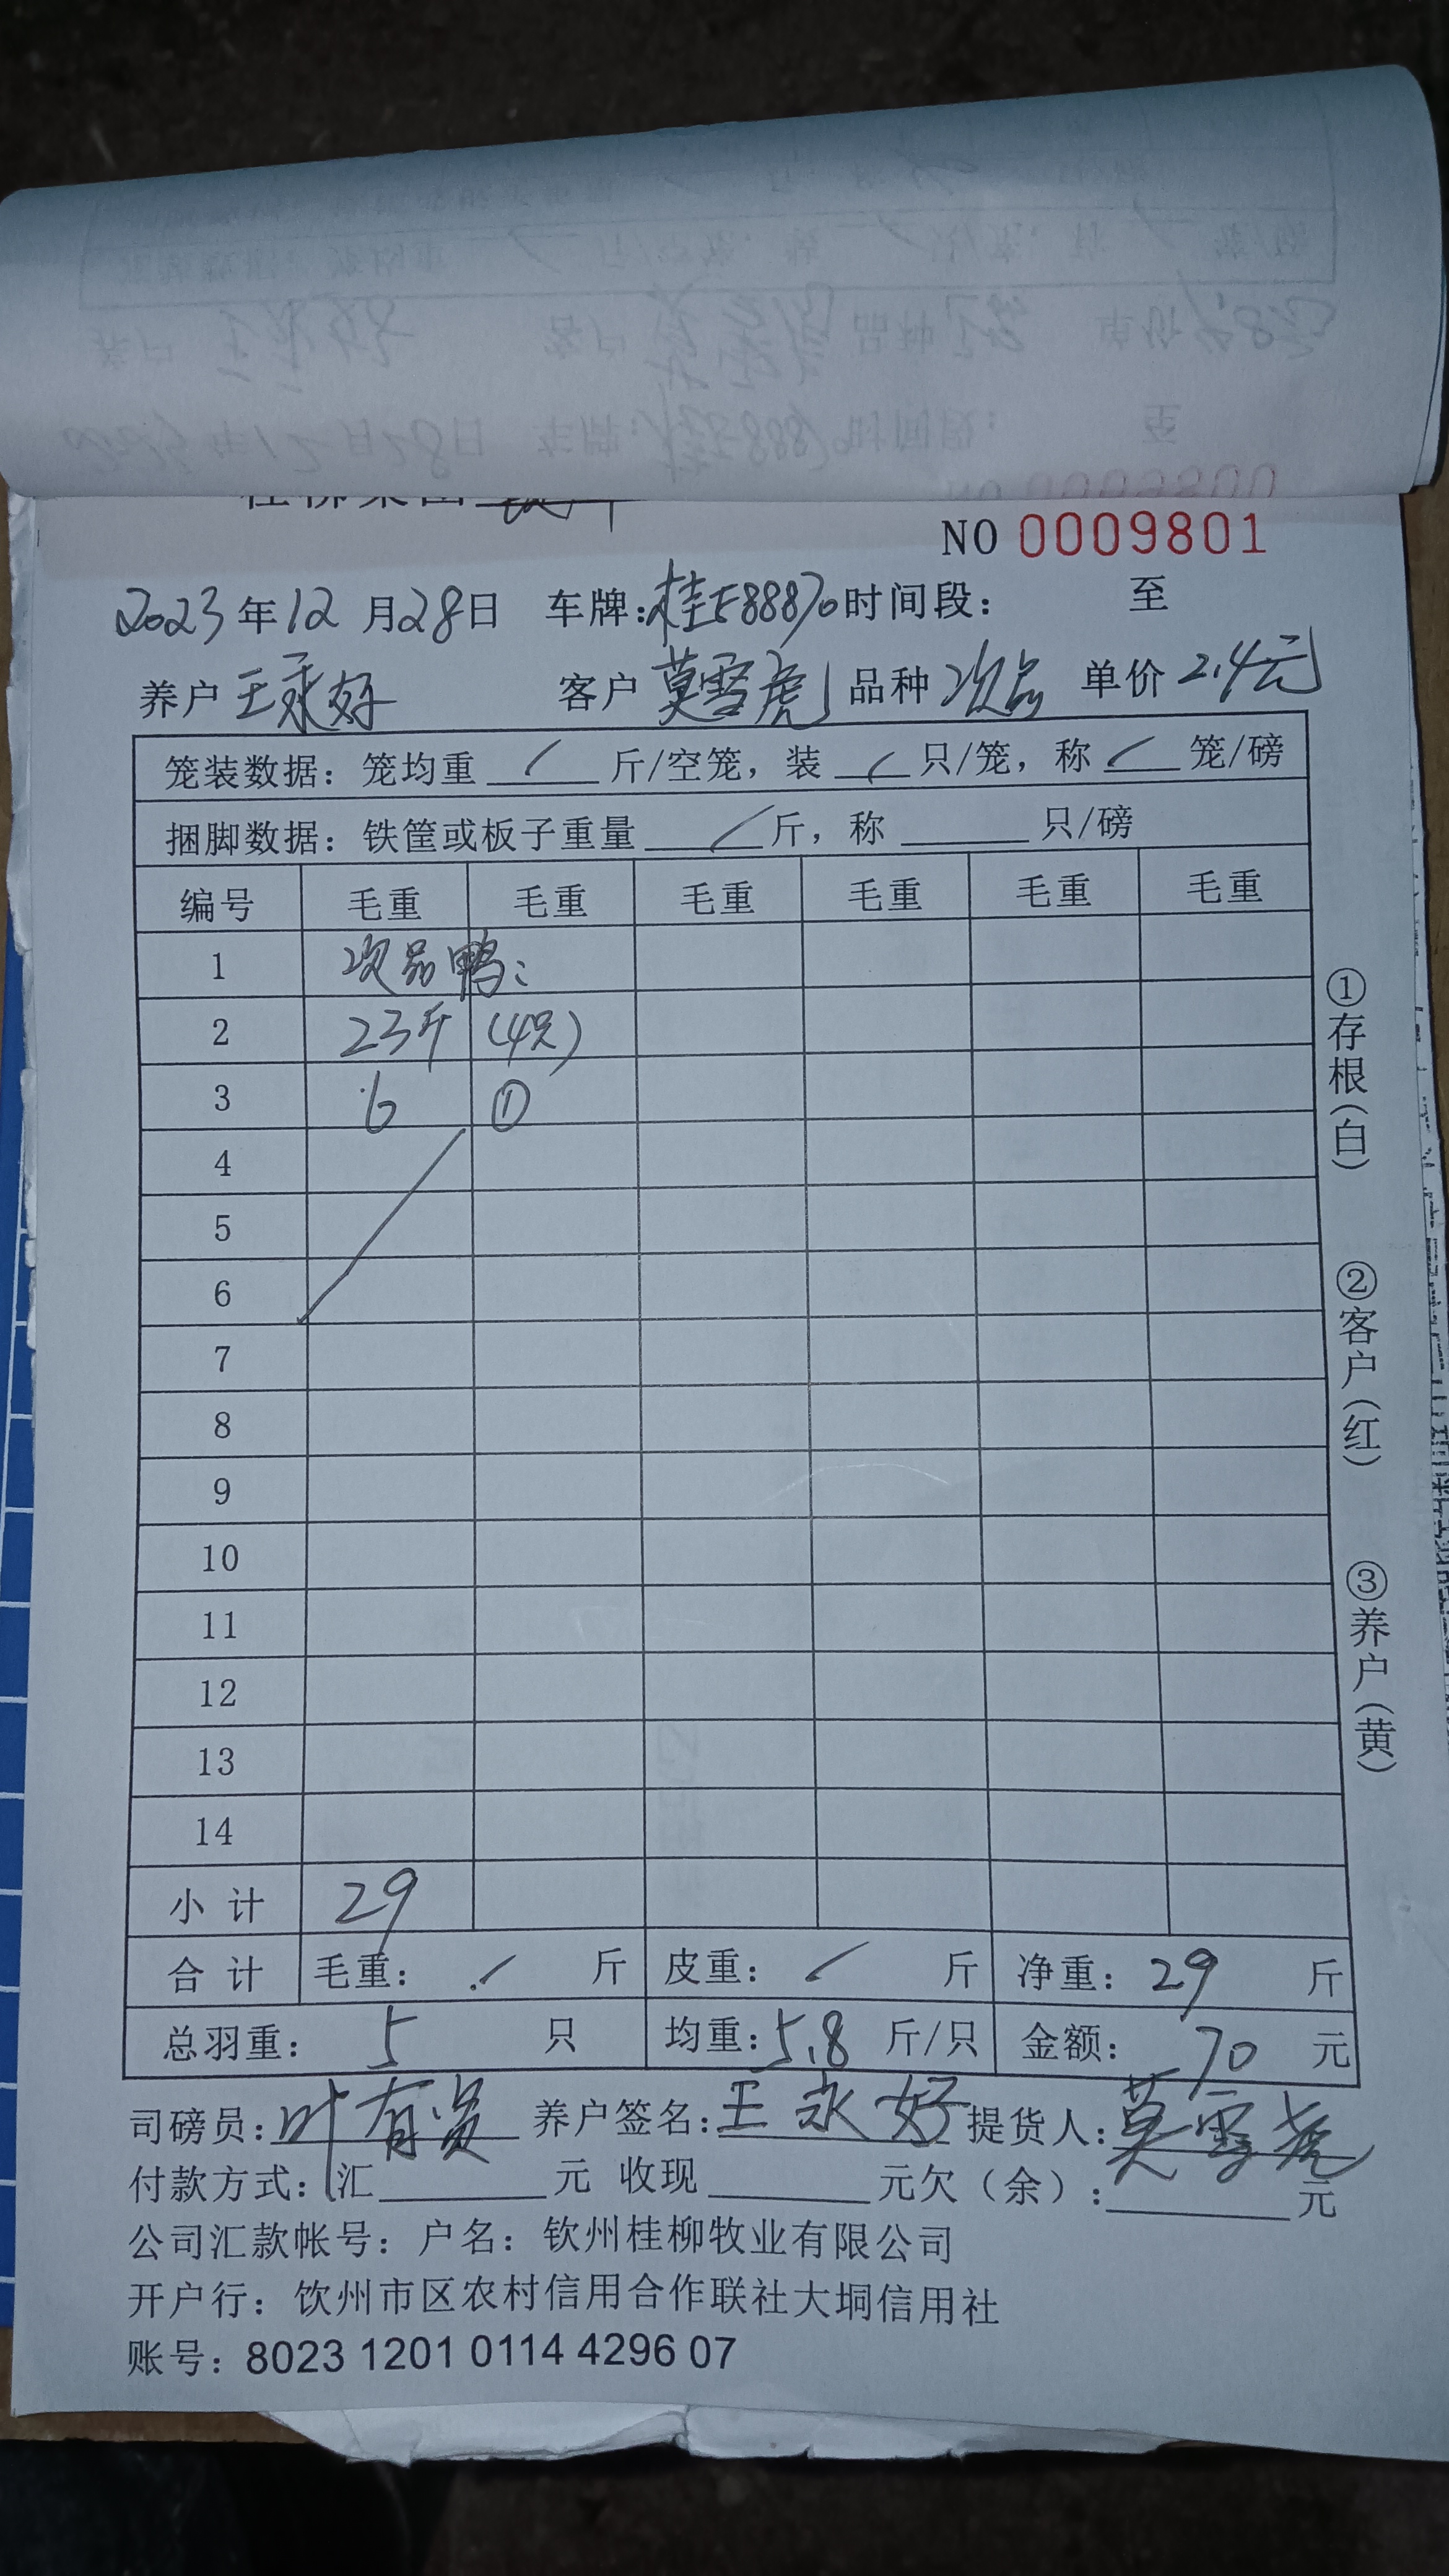 NO 0009801
2023年12月28日 车牌:桂E88870时间段: 至
养户 王永好 客户 莫雪虎 品种 次品 单价 2.4元
笼装数据: 笼均重 / 斤/空笼, 装 / 只/笼, 称 / 笼/磅
捆脚数据: 铁筐或板子重量 / 斤, 称 只/磅
编号 毛重 毛重 毛重 毛重 毛重 毛重
1 次品鸭:
2 23斤 (4只)
3 6 ①
4
5
6
7
8
9
10
11
12
13
14
小计 29
合计 毛重: / 斤 皮重: / 斤 净重: 29 斤
总羽重: 5 只 均重: 5.8 斤/只 金额: 70 元
司磅员: 叶有 养户签名: 王永好 提货人: 莫雪虎
付款方式: 汇 元 收现 元欠(余): 元
公司汇款帐号: 户名: 钦州桂柳牧业有限公司
开户行: 饮州市区农村信用合作联社大垌信用社
账号: 8023 1201 0114 4296 07
①存根(白)
②客户(红)
③养户(黄)